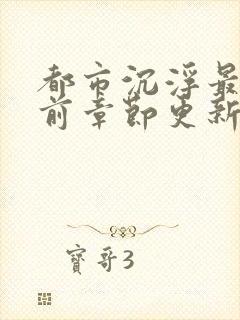 都市沉浮最
前章节更新
寶哥3